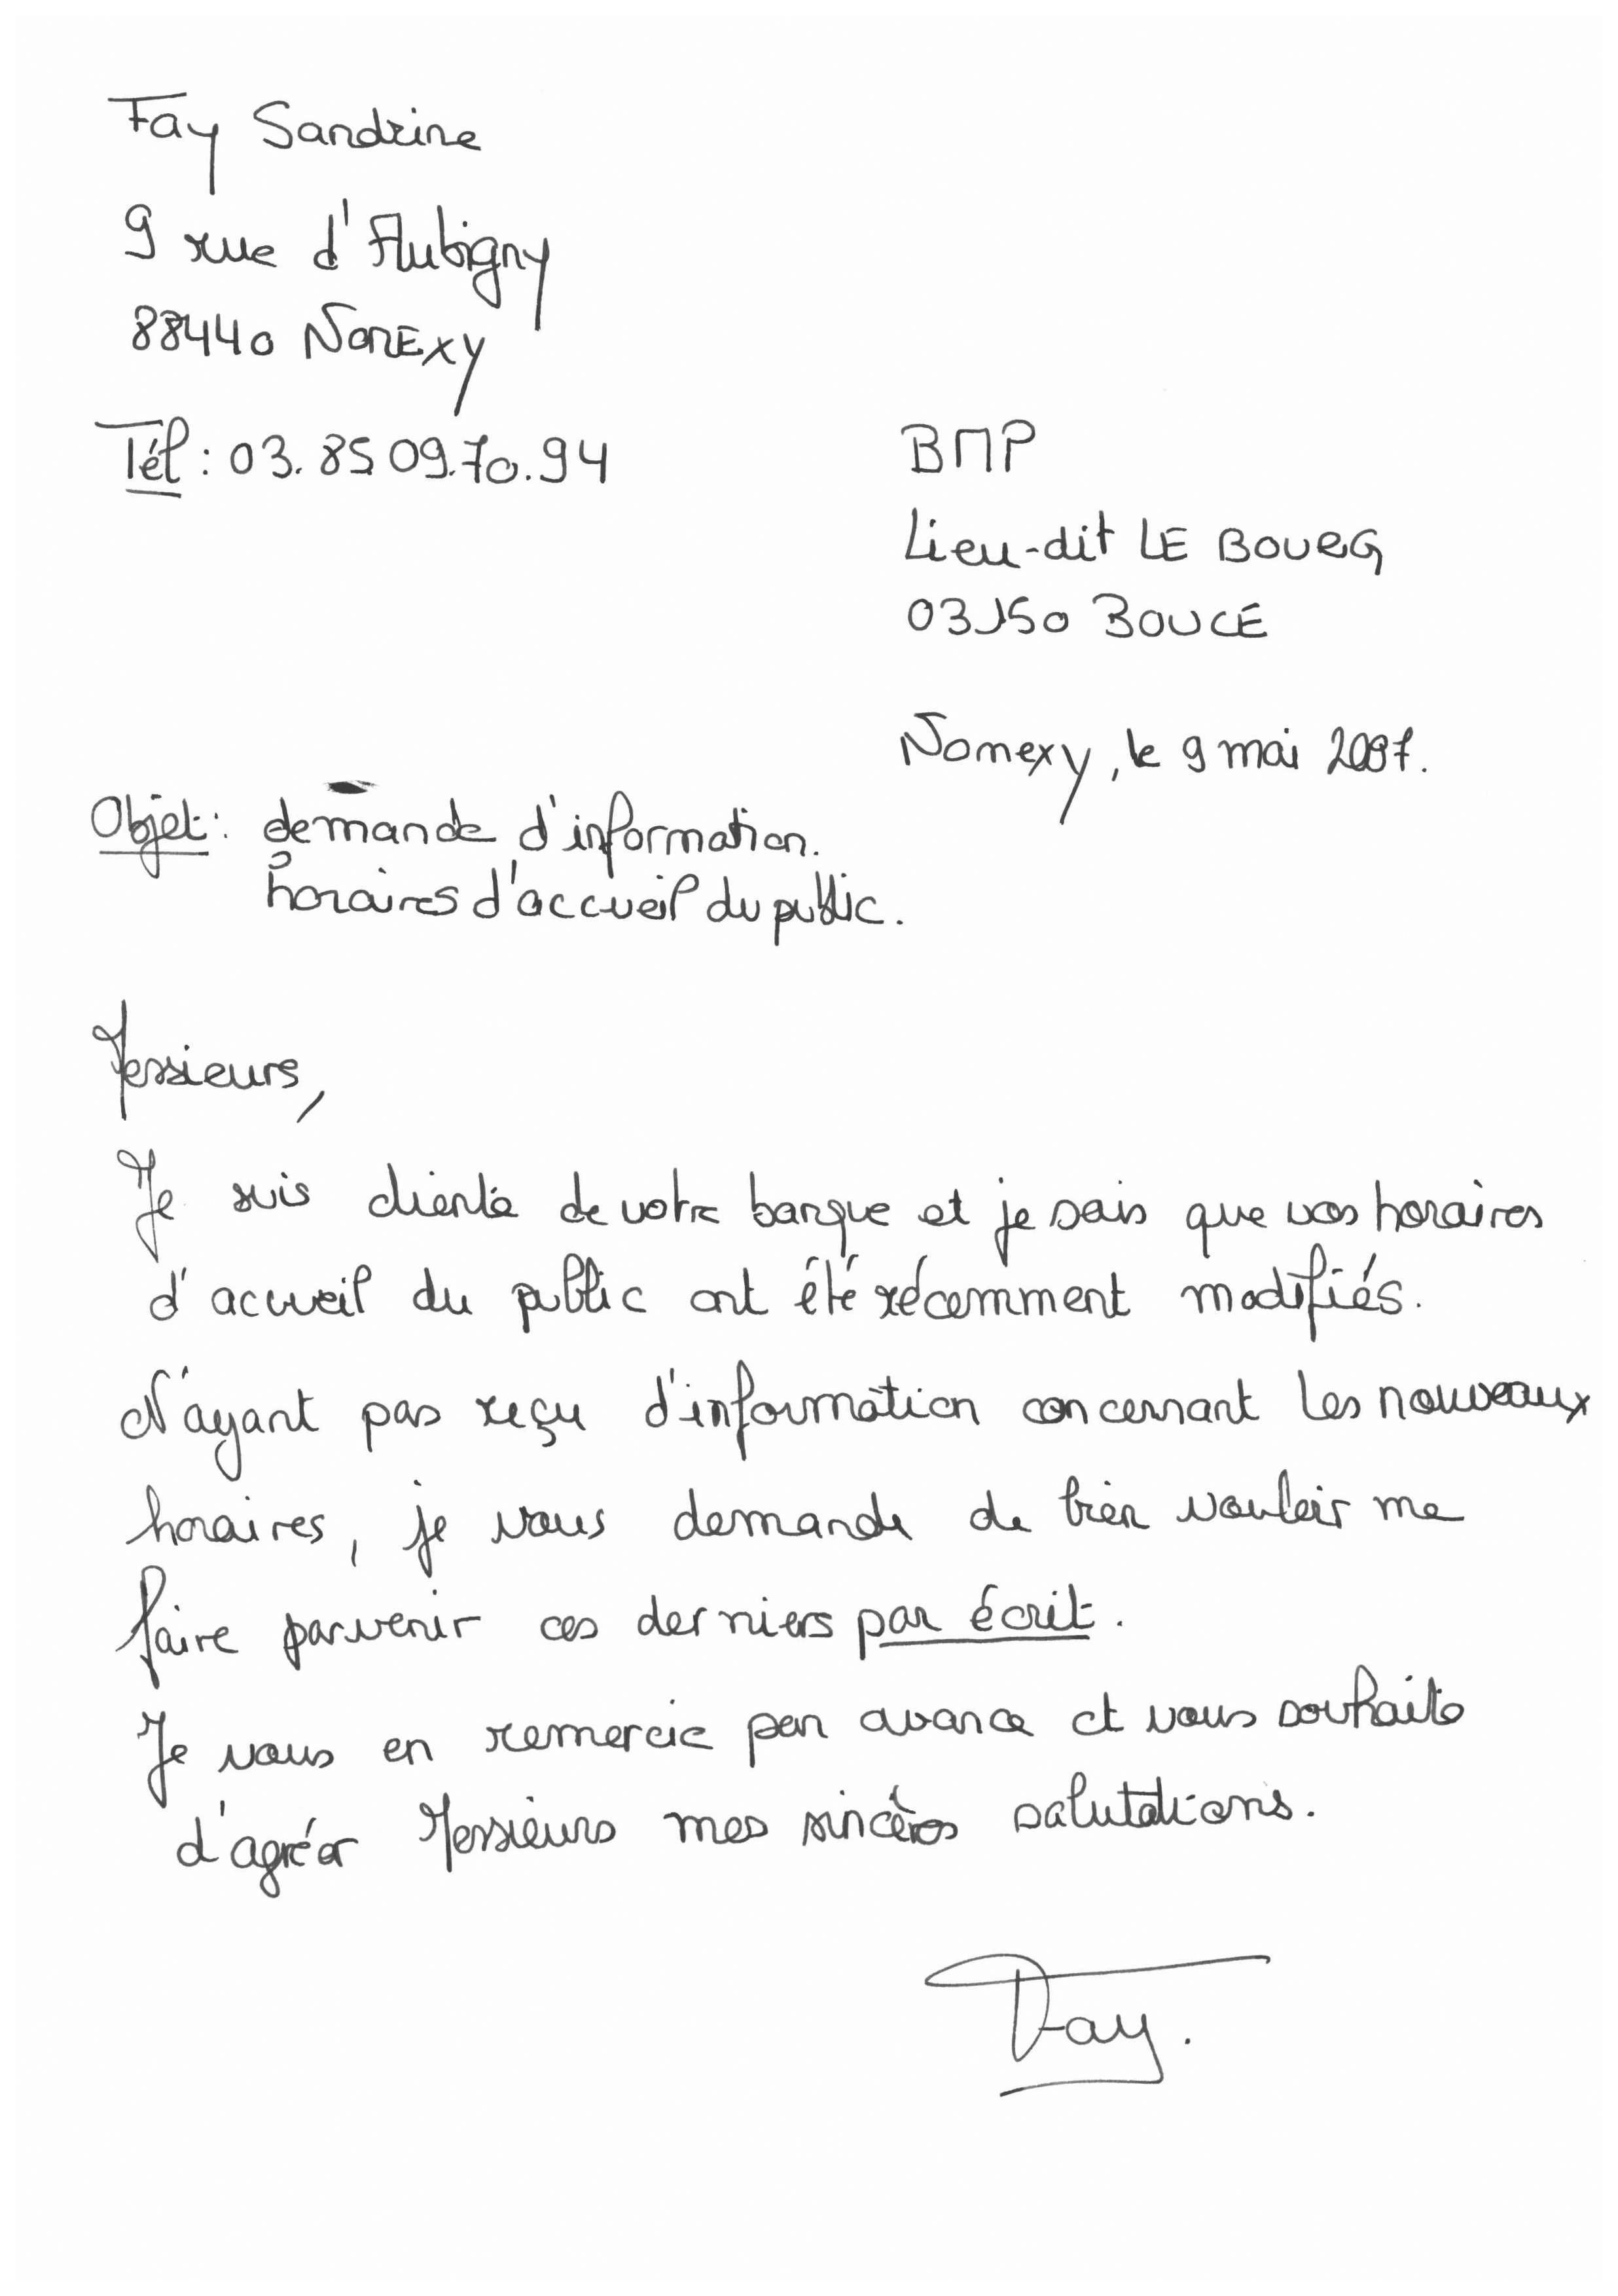 Fay Sandrine
9 rue d'Aubigny
88440 NOMEXY
Tél : 03.85 09.70.94
BMP
Lieu-dit LE BOURG
03150 BOUCÉ
Nomexy, le 9 mai 2007.
Objet : demande d'information.
horaires d'accueil du public.
Messieurs,
Je suis cliente de votre banque et je sais que vos horaires
d'accueil du public ont été récemment modifiés.
N'ayant pas reçu d'information concernant les nouveaux
horaires, je vous demande de bien vouloir me
faire parvenir ces derniers par écrit.
Je vous en remercie par avance et vous souhaite
d'agréer Messieurs mes sincères salutations.
Fay.